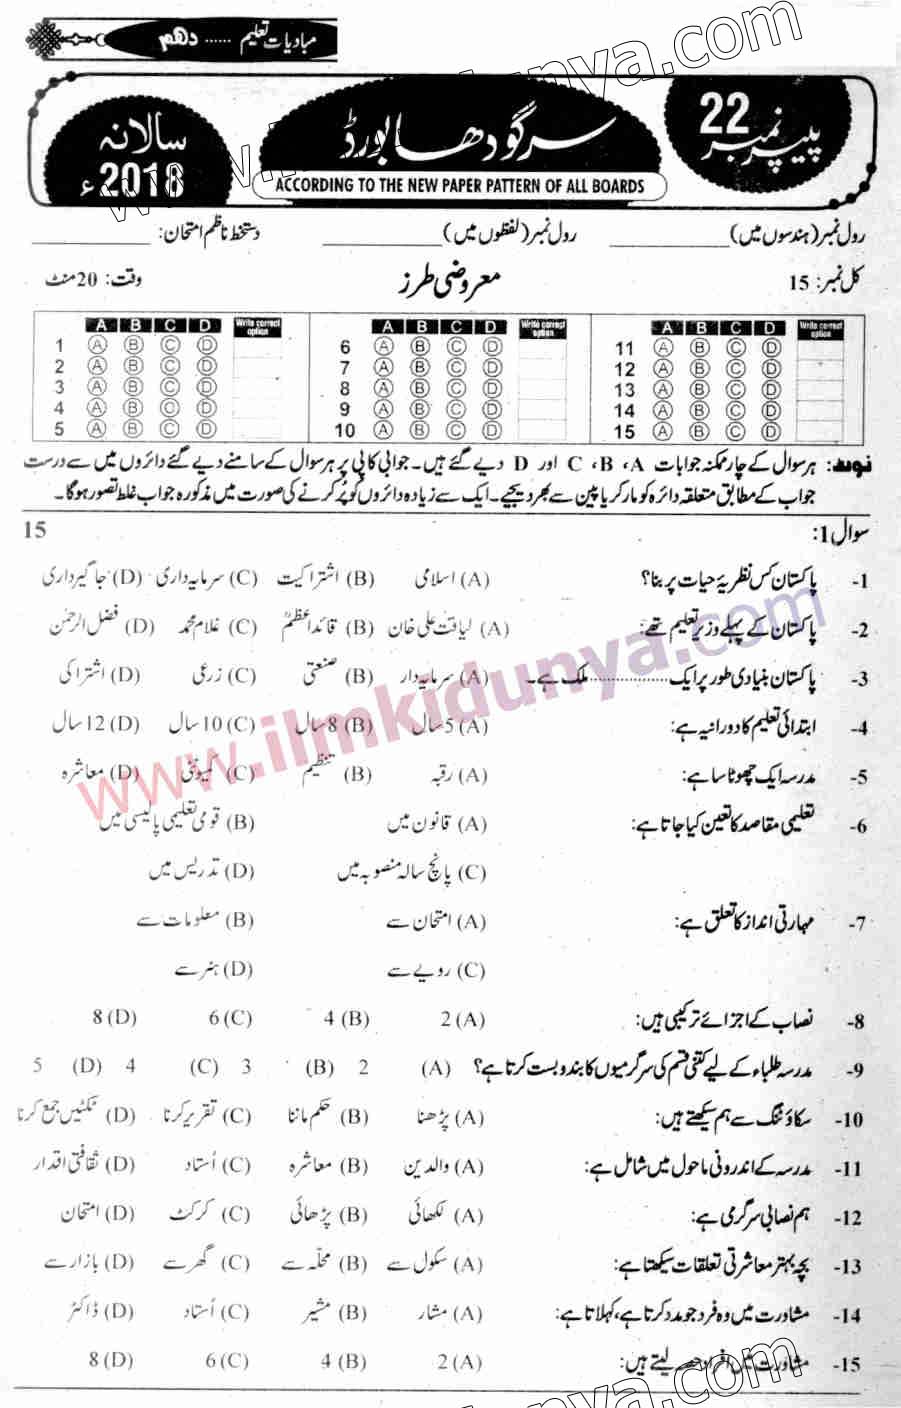 مبادیات تعلیم ...... دہم
پیپر نمبر 22
سرگودھا بورڈ
سالانہ 2018ء
ACCORDING TO THE NEW PAPER PATTERN OF ALL BOARDS
رول نمبر (ہندسوں میں) ____________ رول نمبر (لفظوں میں) ____________ دستخط ناظم امتحان: ____________
کل نمبر: 15 معروضی طرز وقت: 20 منٹ
A B C D Write correct option A B C D Write correct option A B C D Write correct option
1 A B C D 6 A B C D 11 A B C D
2 A B C D 7 A B C D 12 A B C D
3 A B C D 8 A B C D 13 A B C D
4 A B C D 9 A B C D 14 A B C D
5 A B C D 10 A B C D 15 A B C D
نوٹ: ہر سوال کے چار ممکنہ جوابات A، B، C اور D دیے گئے ہیں۔ جوابی کاپی پر ہر سوال کے سامنے دیے گئے دائروں میں سے درست
جواب کے مطابق متعلقہ دائرہ کو مارکر یا پین سے بھر دیجیے۔ ایک سے زیادہ دائروں کو پُر کرنے کی صورت میں مذکورہ جواب غلط تصور ہوگا۔
سوال 1: 15
1- پاکستان کس نظریۂ حیات پر بنا؟ (A) اسلامی (B) اشتراکیت (C) سرمایہ داری (D) جاگیرداری
2- پاکستان کے پہلے وزیر تعلیم تھے: (A) لیاقت علی خان (B) قائداعظمؒ (C) غلام محمد (D) فضل الرحمٰن
3- پاکستان بنیادی طور پر ایک .................. ملک ہے۔ (A) سرمایہ دار (B) صنعتی (C) زرعی (D) اشتراکی
4- ابتدائی تعلیم کا دورانیہ ہے: (A) 5 سال (B) 8 سال (C) 10 سال (D) 12 سال
5- مدرسہ ایک چھوٹا سا ہے: (A) رقبہ (B) تنظیم (C) کمیونٹی (D) معاشرہ
6- تعلیمی مقاصد کا تعین کیا جاتا ہے: (A) قانون میں (B) قومی تعلیمی پالیسی میں
(C) پانچ سالہ منصوبہ میں (D) تدریس میں
7- مہارتی انداز کا تعلق ہے: (A) امتحان سے (B) معلومات سے
(C) رویے سے (D) ہنر سے
8- نصاب کے اجزائے ترکیبی ہیں: (A) 2 (B) 4 (C) 6 (D) 8
9- مدرسہ طلباء کے لیے کتنی قسم کی سرگرمیوں کا بندوبست کرتا ہے؟ (A) 2 (B) 3 (C) 4 (D) 5
10- سکاؤٹنگ سے ہم سیکھتے ہیں: (A) پڑھنا (B) حکم ماننا (C) تقریر کرنا (D) ٹکٹیں جمع کرنا
11- مدرسہ کے اندرونی ماحول میں شامل ہے: (A) والدین (B) معاشرہ (C) اُستاد (D) ثقافتی اقدار
12- ہم نصابی سرگرمی ہے: (A) لکھائی (B) پڑھائی (C) کرکٹ (D) امتحان
13- بچہ بہتر معاشرتی تعلقات سیکھتا ہے: (A) سکول سے (B) محلّہ سے (C) گھر سے (D) بازار سے
14- مشاورت میں وہ فرد جو مدد کرتا ہے، کہلاتا ہے: (A) مشار (B) مشیر (C) اُستاد (D) ڈاکٹر
15- مشاورت میں افراد حصہ لیتے ہیں: (A) 2 (B) 4 (C) 6 (D) 8
www.ilmkidunya.com